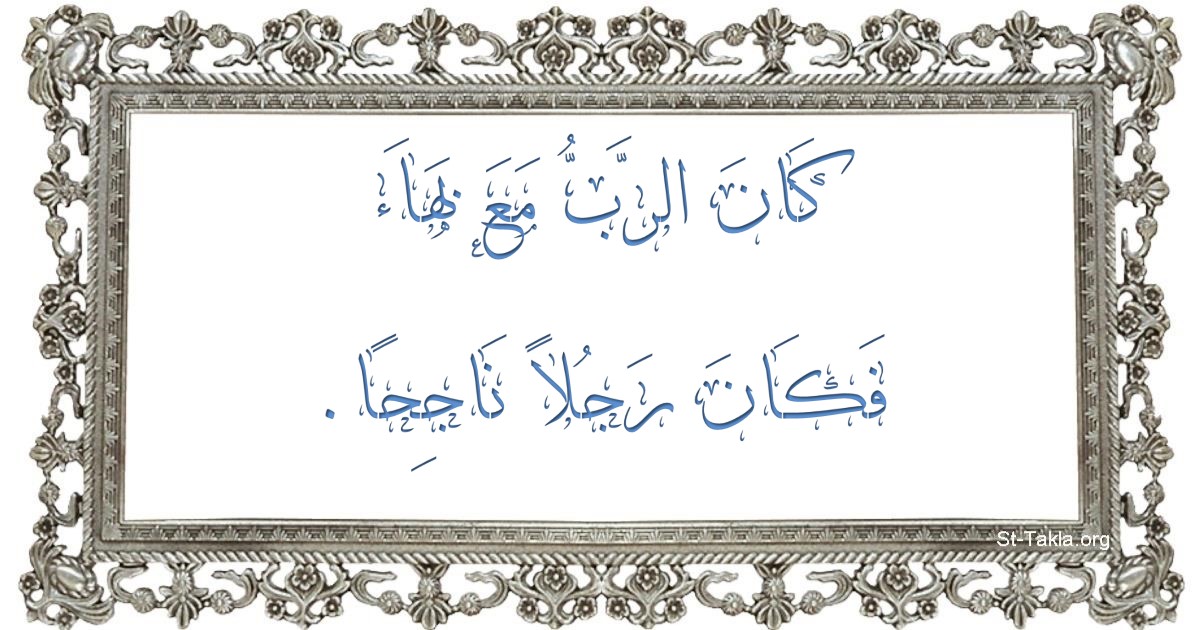 كَانَ الرَّبُّ مَعَ بَهَاءَ
فَكَانَ رَجُلاً نَاجِحًا .
St-Takla.org